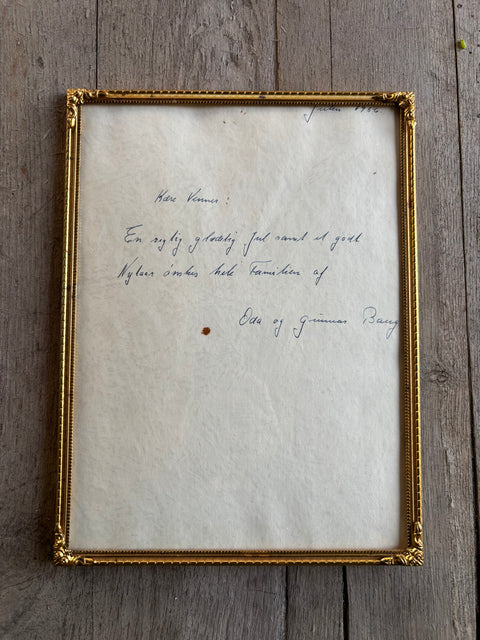 Julen 1966
Kære Venner:
En rigtig glædelig Jul samt et godt
Nytaar ønskes hele Familien af
Oda og Gunnar Bang